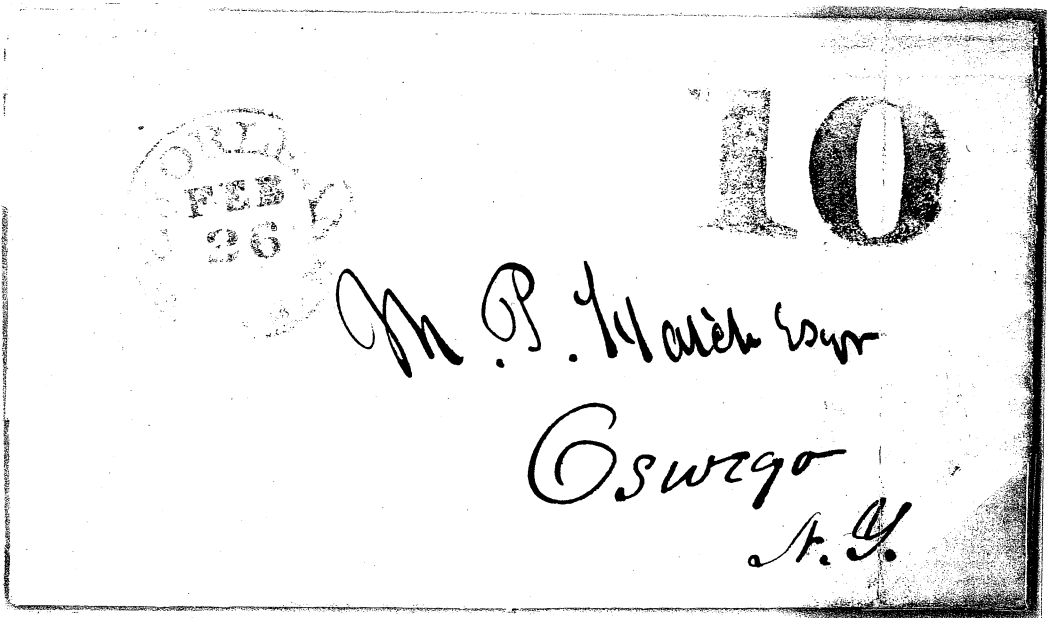 ORLE
FEB
26
10
M. P. Hatch Esqr
Oswego
N. Y.